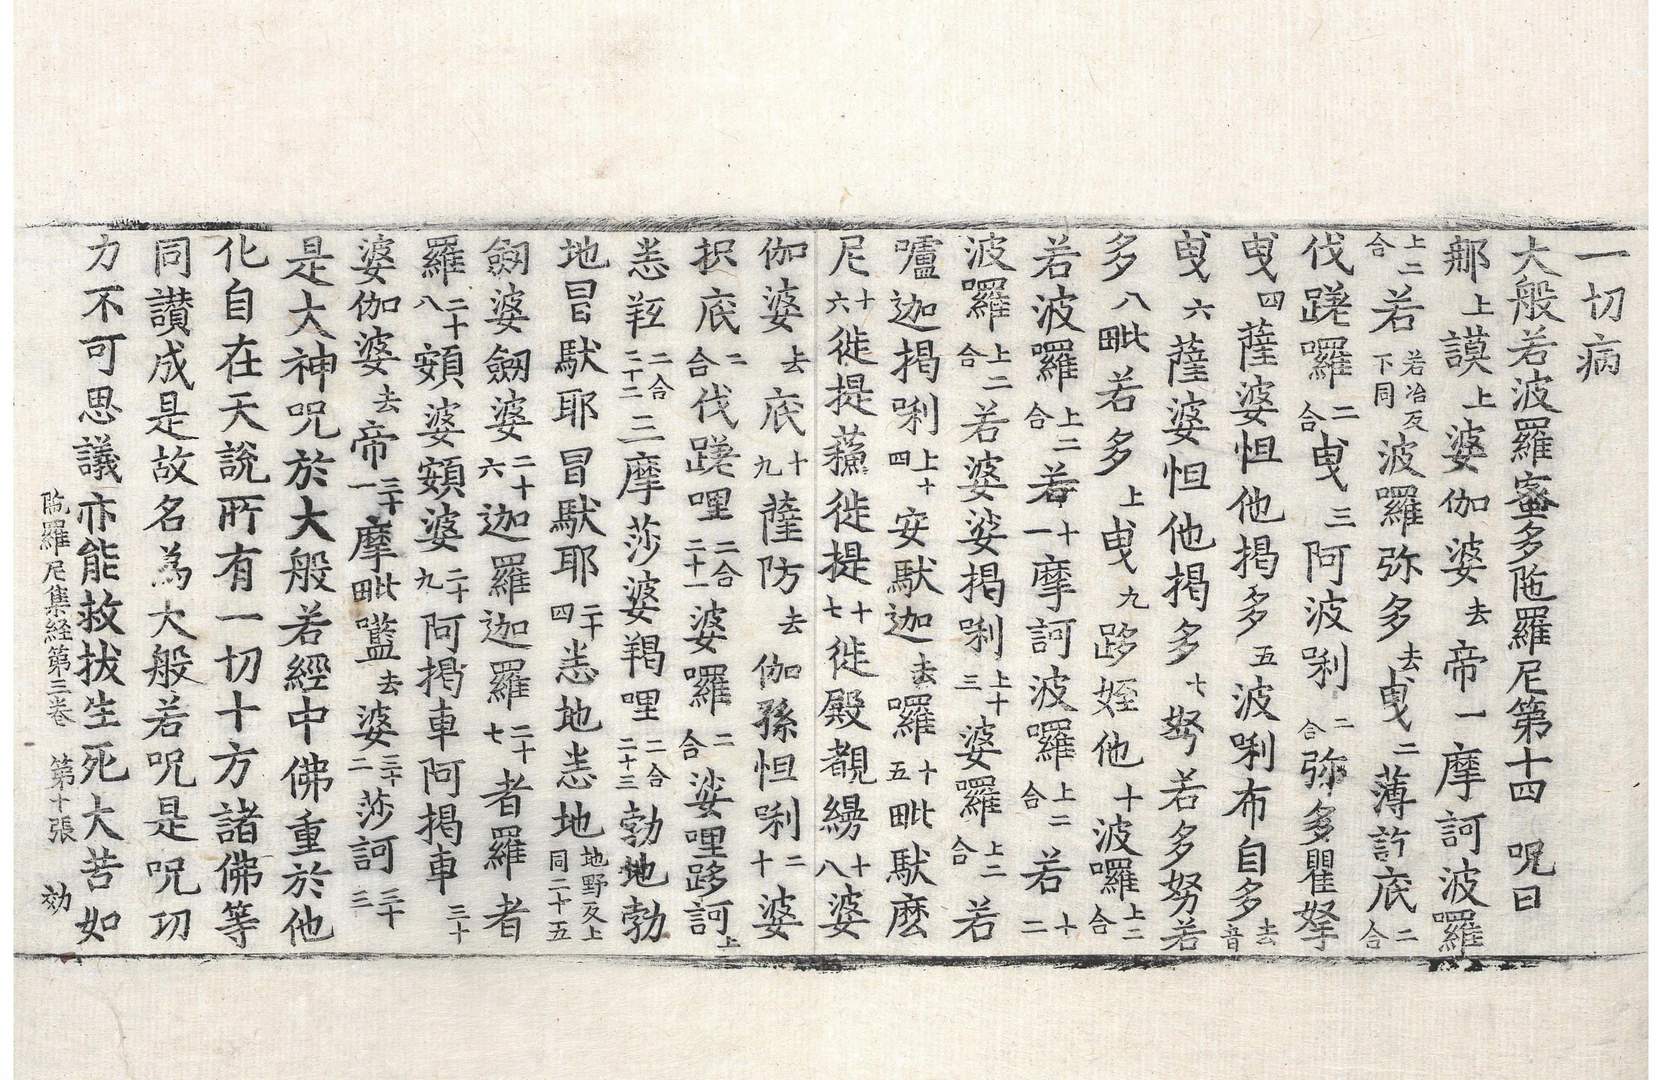 一切病
大般若波羅蜜多陁羅尼第十四 呪曰
那上謨上婆伽婆去帝一摩訶波羅
上二合若若冶反下同波羅弥多去曳二薄訖底二合
伐蹉囉二合曳三阿波唎二合弥多瞿拏
曳四薩婆怛他揭多五波唎布自多去音
曳六薩婆怛他揭多七努若多努若
多八毗若多上曳九跢姪他十波囉上二合
若波囉上二合若十一摩訶波囉上二合若十二
波囉上二合若婆娑揭唎上十三婆囉上二合若
嚧迦揭唎上十四安馱迦去囉十五毗馱麽
尼十六徙提蘓徙提十七徙殿覩縵十八婆
伽婆去底十九薩防去伽孫怛唎二十婆
抧底二合伐蹉哩二合二十一婆囉二合娑哩跢訶上
恙羥二合二十二三摩莎婆羯哩二合二十三勃地勃
地冐馱耶冐馱耶二十四恙地恙地地野反上同二十五
劔婆劔婆二十六迦羅迦羅二十七者羅者
羅二十八頞婆頞婆二十九阿揭車阿揭車三十
婆伽婆去帝三十一摩毗㘕去婆三十二莎訶三十三
是大神呪於大般若經中佛重於他
化自在天說所有一切十方諸佛等
同讃成是故名為大般若呪是呪功
力不可思議亦能救拔生死大苦如
陁羅尼集経第三卷 第十張 効